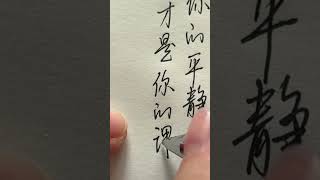 你的平静
才是你的课